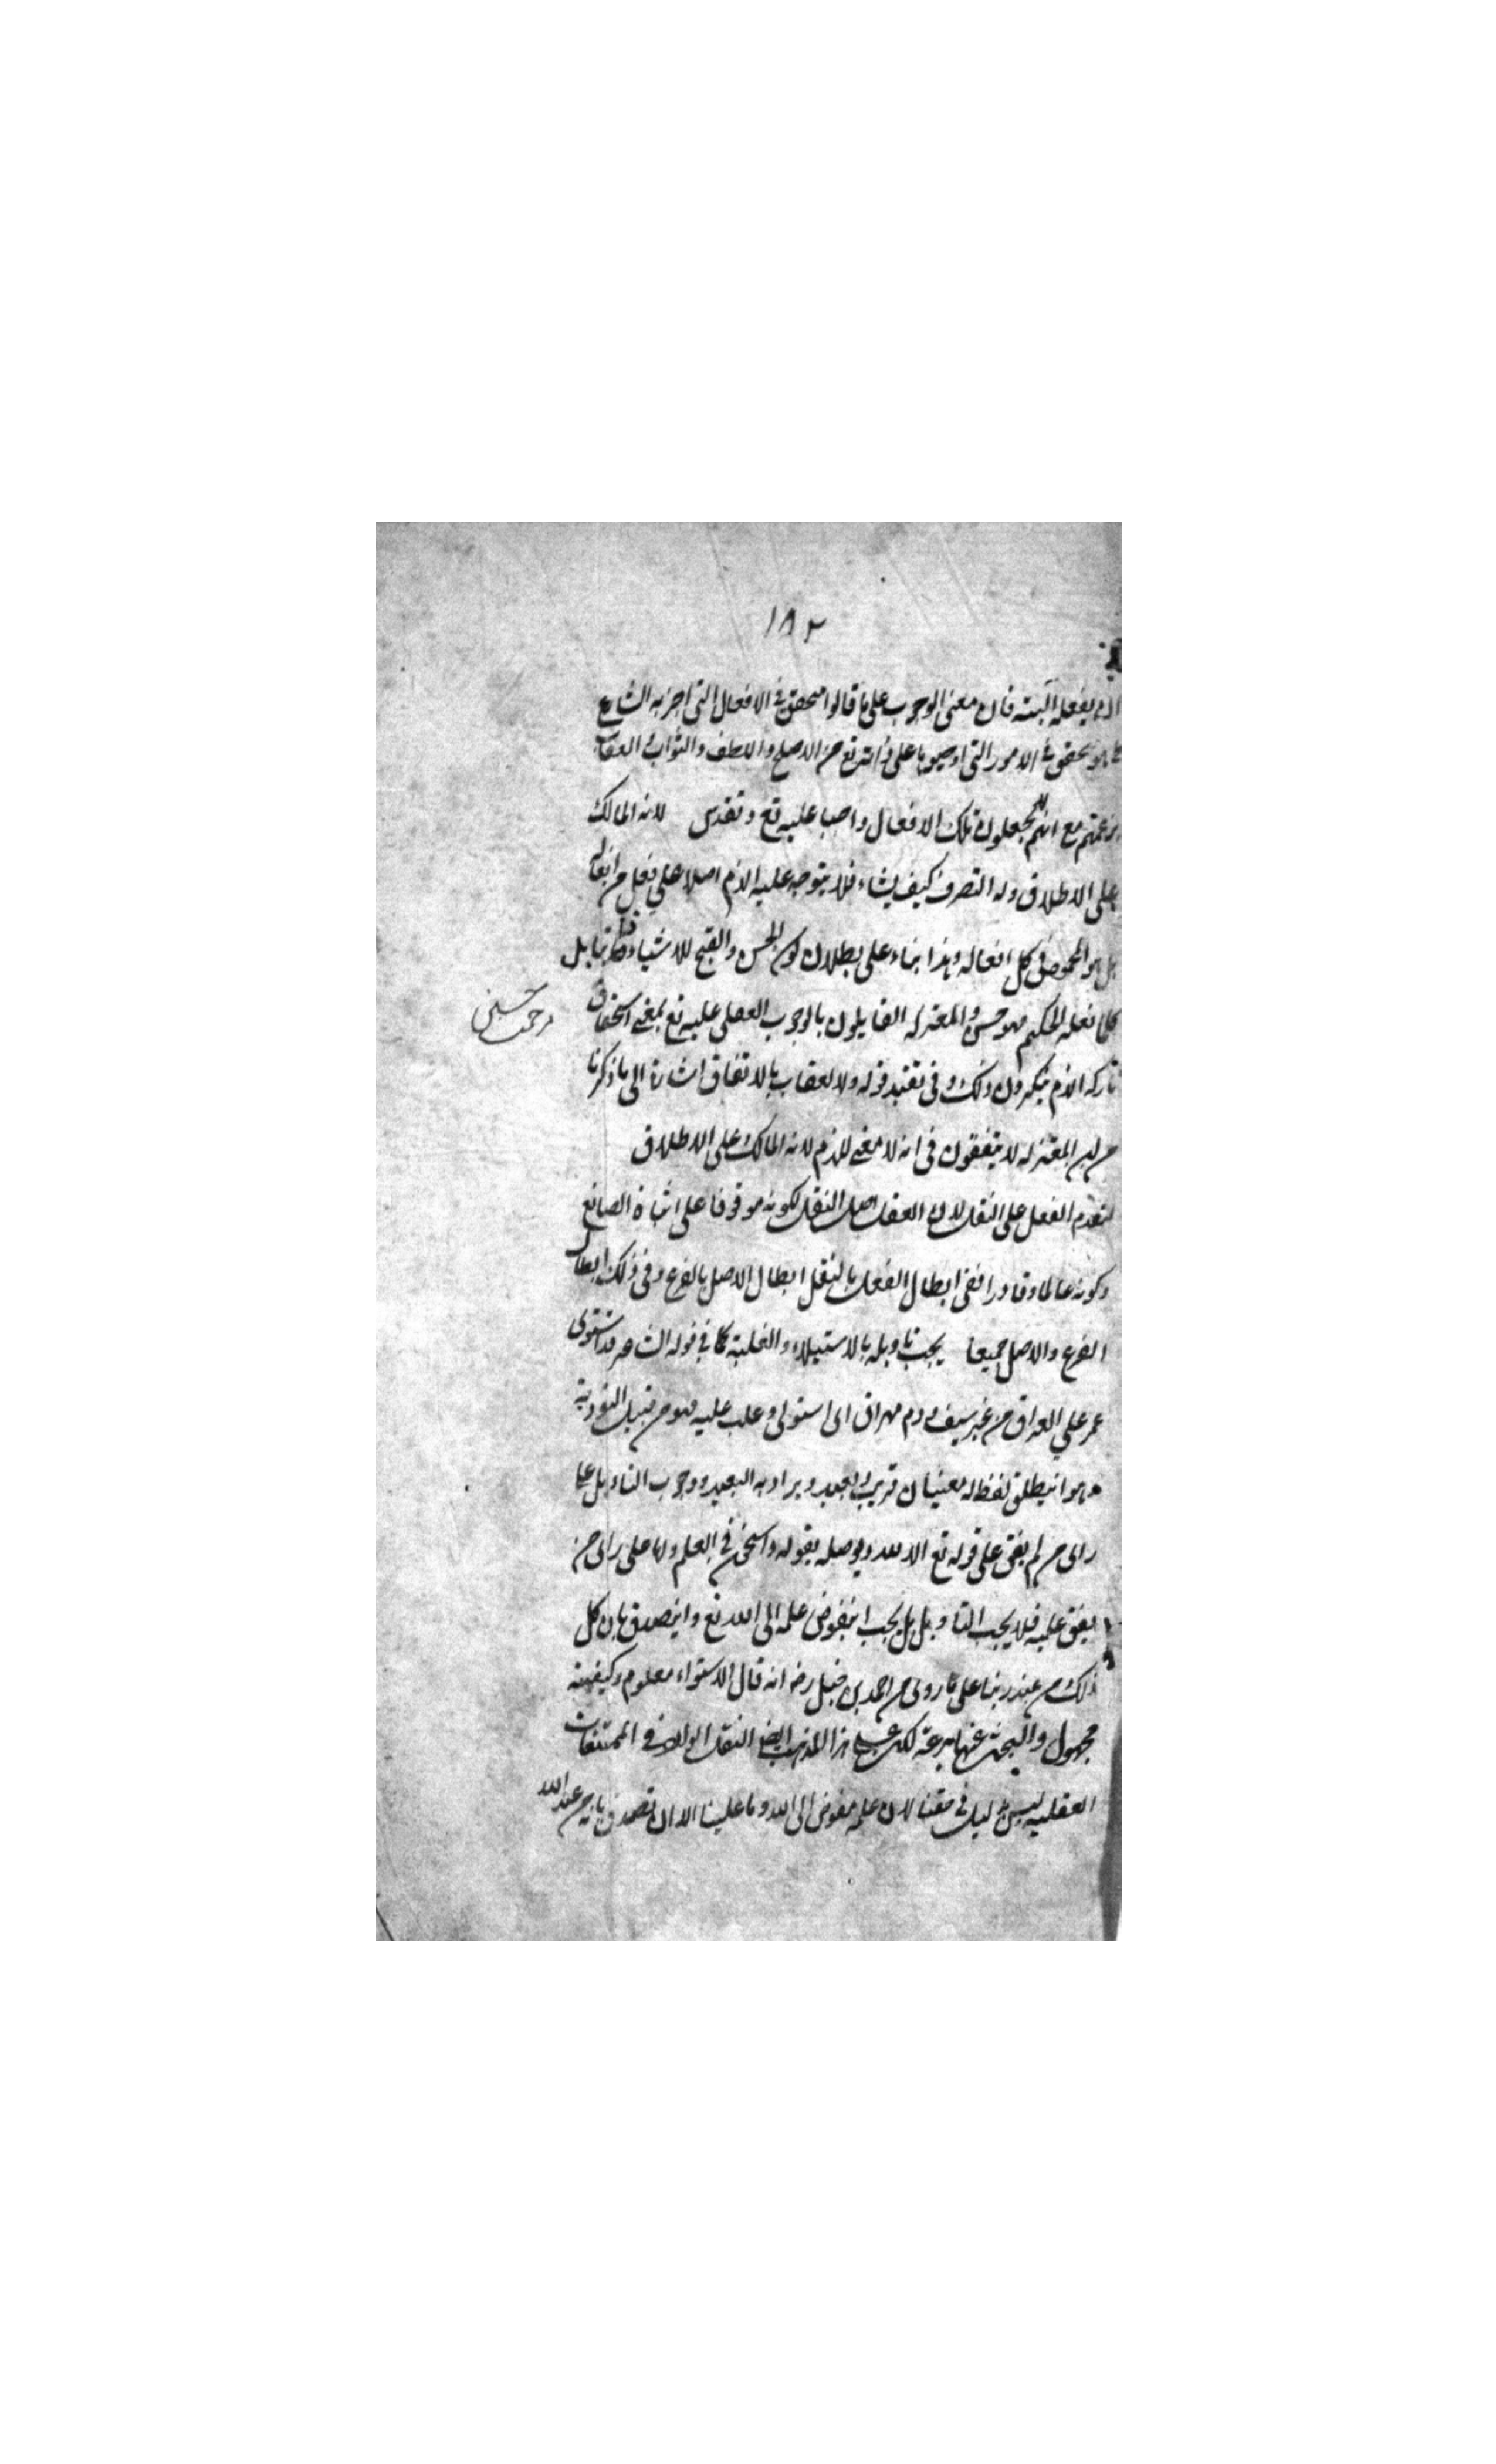 ١٨٢
يفعله البتة فان معنى الوجوب على ما قالوا متحقق في الافعال التي اخبر به الشارع
الامور التي اوجبوها على الله تع من الاصلح واللطف والثواب والعقاب
بزعمهم مع انهم لا يجعلون تلك الافعال واجبا عليه تع وتقدس لانه المالك
على الاطلاق وله التصرف كيف يشاء فلا يتوجه عليه الذم اصلا على فعل من افعاله
بل هو المحمود في كل افعاله وهذا بناء على بطلان كون الحسن والقبح للاشياء بل
كلما فعله الحكيم فهو حسن والمعتزله القايلون بالوجوب العقلي عليه تع بمعنى استحقاق
مرحمت حسينى
تاركه الذم ينكرون ذلك وفي تقييد قوله ولا لعقاب بالاتفاق اشارة الى ما ذكرنا
من ان المعتزله لا يتفقون في انه لا معنى للذم لانه المالك على الاطلاق
لتقدم العقل على النقل لان العقل اصل النقل لكونه موقوفا على اثبات الصانع
وكونه عالما وقادرا ففي ابطال العقل بالنقل ابطال الاصل بالفرع وفي ذلك ابطال
الفرع والاصل جميعا يجب تاويله بالاستيلاء والغلبة كما في قوله الشاعر قد استوى
عمر على العراق من غير سيف ودم مهراق اى استولى وغلب عليه فهو من قبيل التورية
وهو ان يطلق لفظ له معنيان قريب وبعيد ويراد به البعيد ووجوب التاويل على
راى من لم يقف على قوله تع الا الله ويوصله بقوله والراسخون في العلم واما على راى من
يقف عليه فلا يجب التاويل بل يجب ان يفوض علمه الى الله تع وان يصدق بان كل
ذلك من عند ربنا على ما روى من احمد بن حنبل رض انه قال الاستواء معلوم وكيفيته
مجهول والبحث عنها بدعة لكن على هذا المذهب ايضا النقل الوارد في الممتنعات
العقلية ليس بدليل في حقنا لان علمه مفوض الى الله وما علينا الا ان نصدق بانه من عند الله